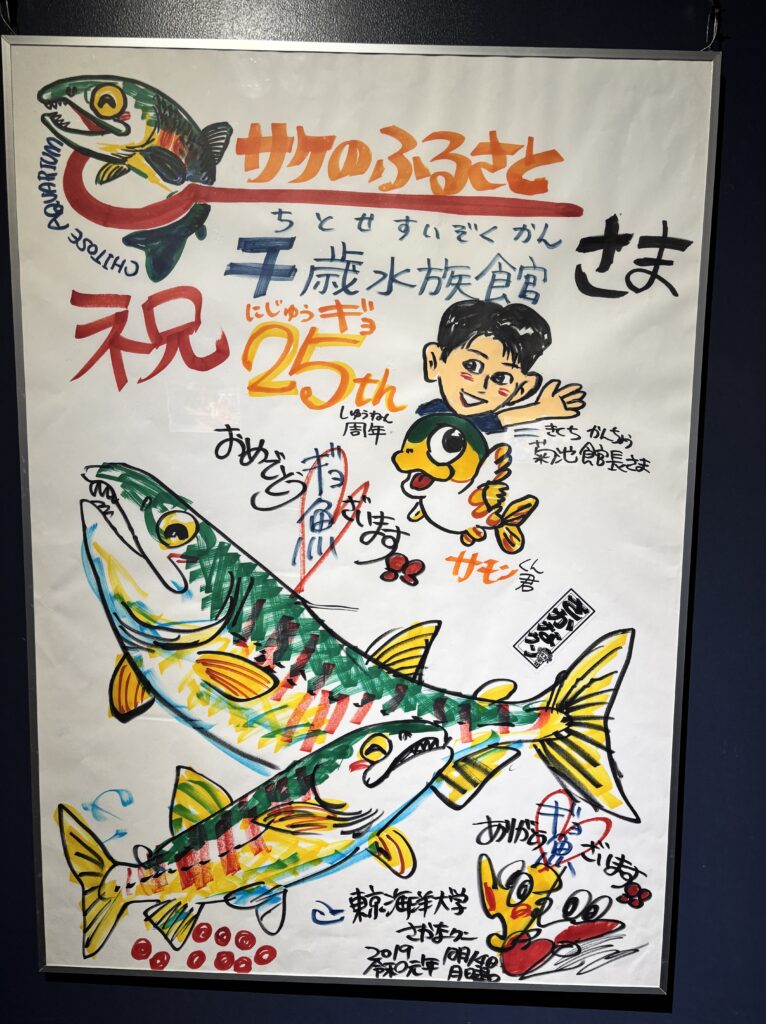 CHITOSE AQUARIUM
サケのふるさと
ちとせすいぞくかん
千歳水族館
さま
祝
にじゅうギョ
25th
しゅうねん
周年
きくち かんちょう
菊池館長さま
おめでとう
ギョ
魚
ざいます
サーモン
くん
君
さかなクン
ありがとう
ギョ
魚
ざいます
東京海洋大学
さかなクン
2019
令和元年
10月14日
月曜日